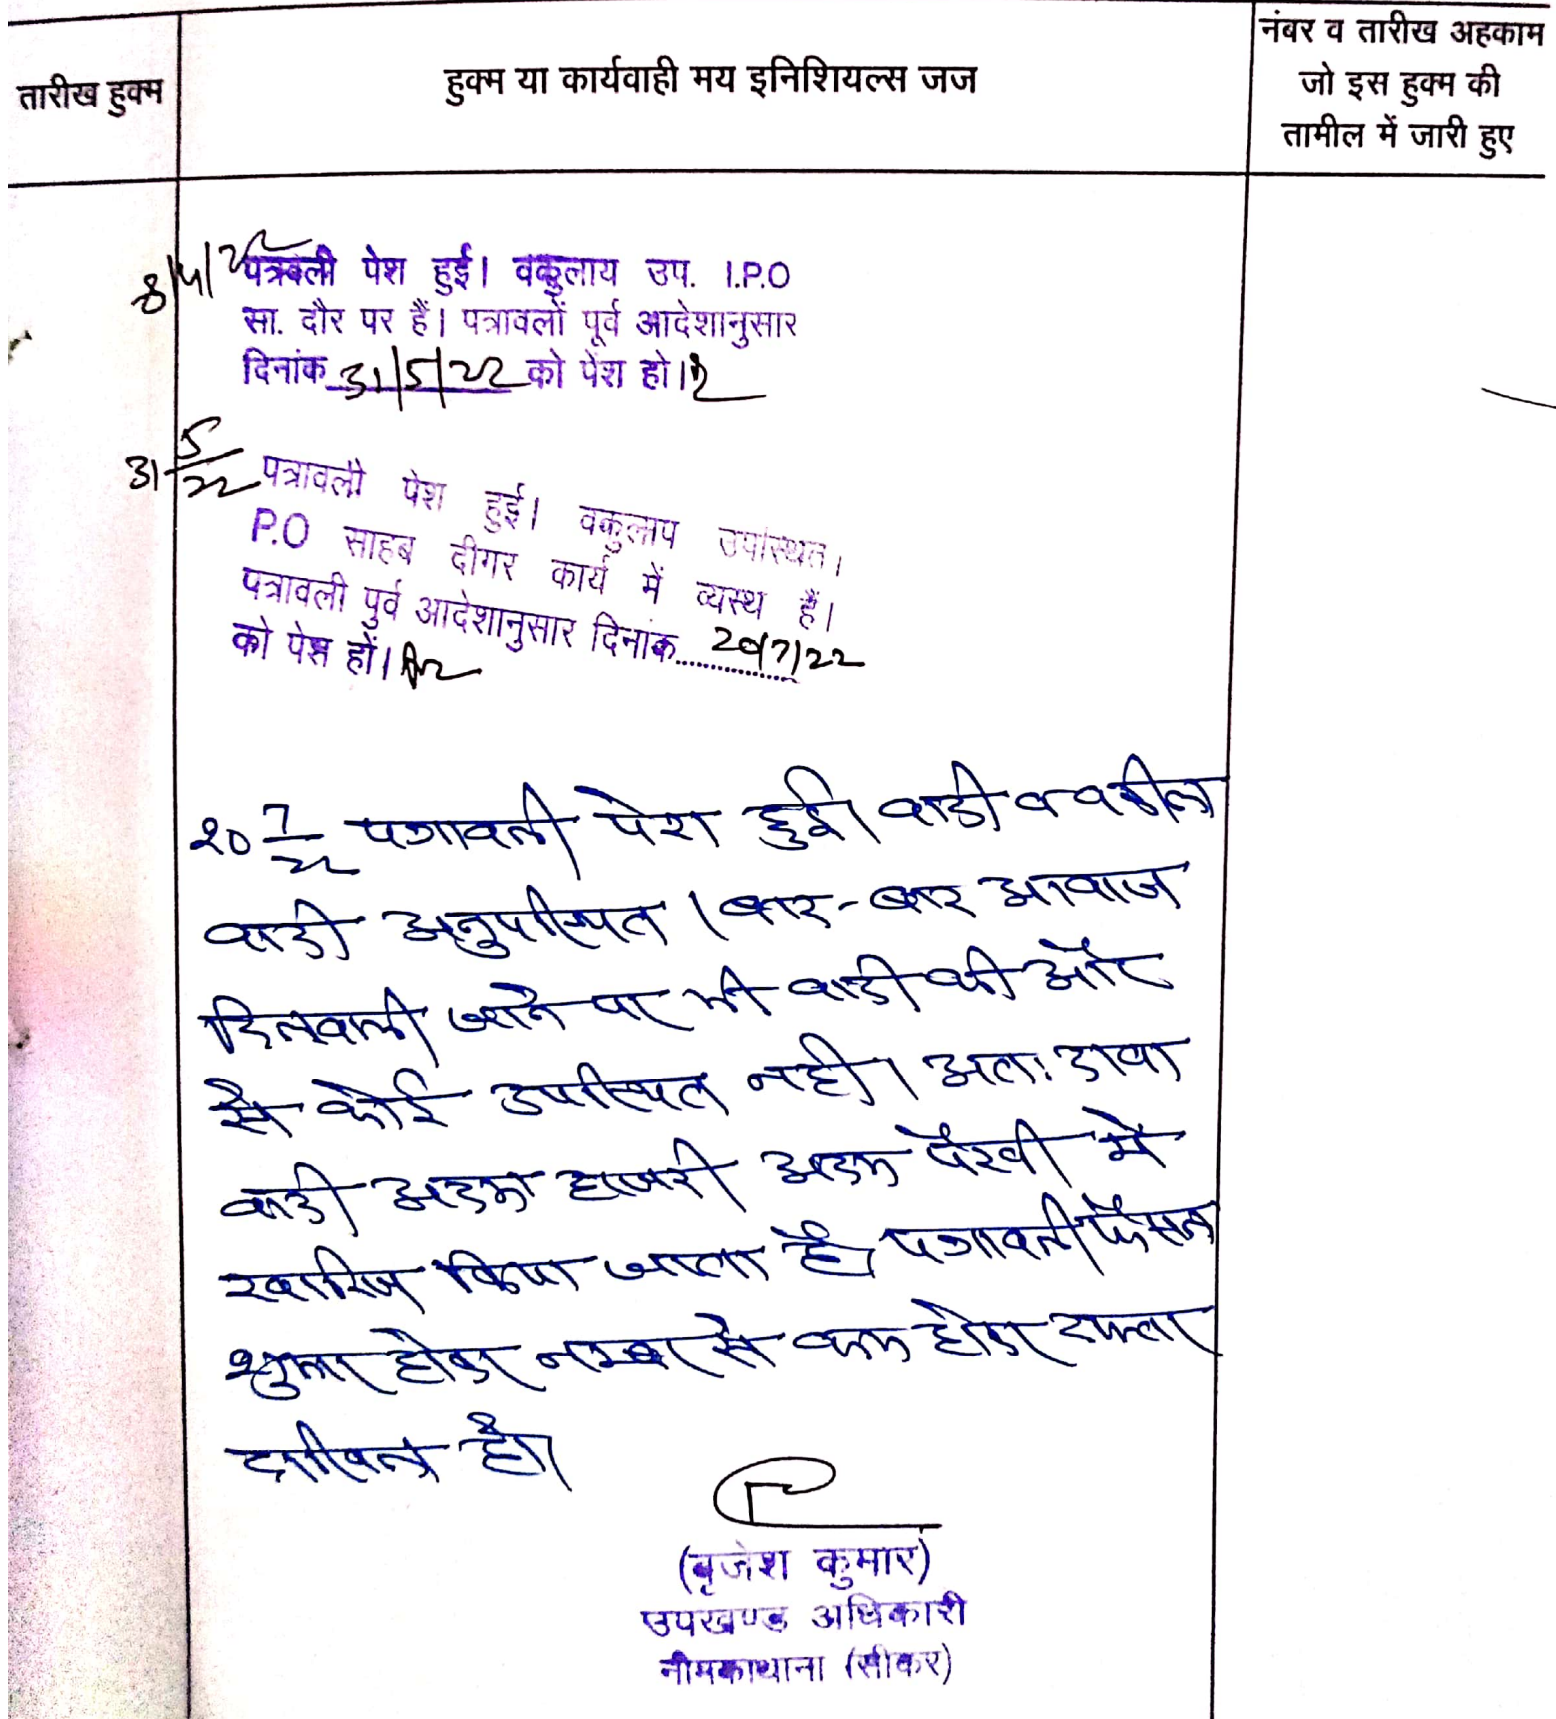 तारीख हुक्म
हुक्म या कार्यवाही मय इनिशियल्स जज
नंबर व तारीख अहकाम
जो इस हुक्म की
तामील में जारी हुए
पत्रावली पेश हुई। वकुलाय उप. I.P.O
सा. दौर पर हैं। पत्रावलों पूर्व आदेशानुसार
दिनांक 31/5/22 को पेश हो।
31 5/22 पत्रावली पेश हुई। वकुलाय उपस्थित।
P.O साहब दीगर कार्य में व्यस्थ हैं।
पत्रावली पुर्व आदेशानुसार दिनांक 20/7/22
को पेश हों।
20 7/22 पत्रावली पेश हुई। वादी व वकील
वादी अनुपस्थित। बार-बार आवाज
दिलवाली जाने पर भी वादी की और
से कोई उपस्थित नही। अतः दावा
वादी अदम हाजरी अदम पैरवी मे
खारिज किया जाता है। पत्रावली फैसल
शुमार होकर नम्बर से कम होकर दफ्तर
दाखिल हो।
(बृजेश कुमार)
उपखण्ड अधिकारी
नीमकाथाना (सीकर)